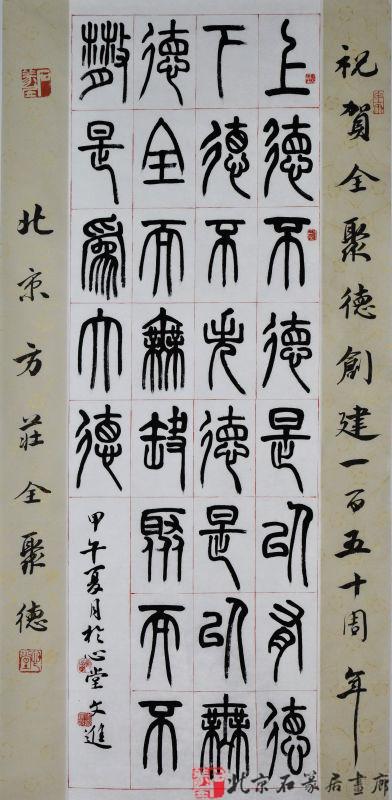 祝賀全聚德創建一百五十周年
上德不德是以有德
下德不失德是以無
德全而無缺聚而不
散是爲大德
甲午夏月於心堂文進
北京方莊全聚德
北京石篆居畫廊